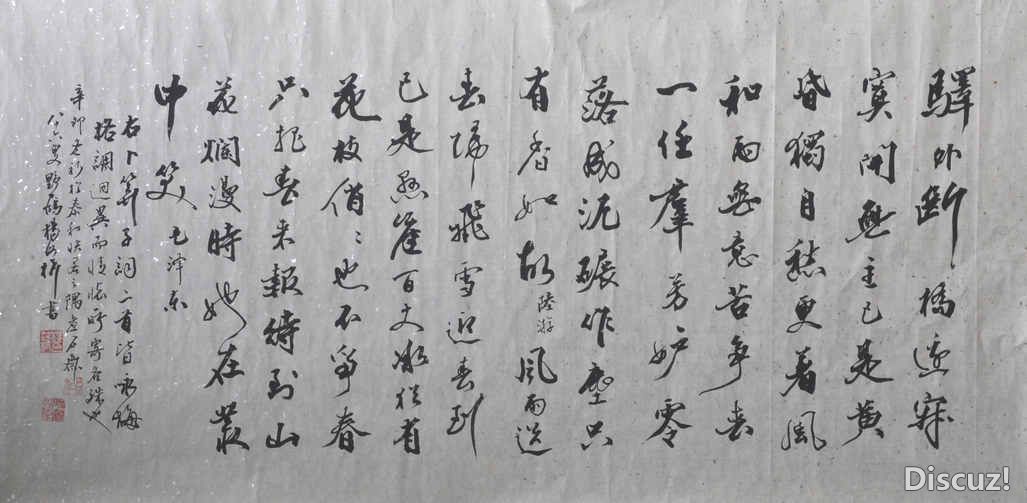 驛外斷橋邊寂
寞開無主已是黃
昏獨自愁更著風
和雨無意苦爭春
一任羣芳妒零
落成泥碾作塵只
有香如故 陸游 風雨送
春歸飛雪迎春到
已是懸崖百丈冰猶有
花枝俏〻也不爭春
只把春來報待到山
花爛漫時她在叢
中笑 毛泽东
右卜算子詞二首皆咏梅
格調迥異而情懷所寄各殊也
辛卯 於泰和 隅 
八六叟野鶴楊 書
Discuz!